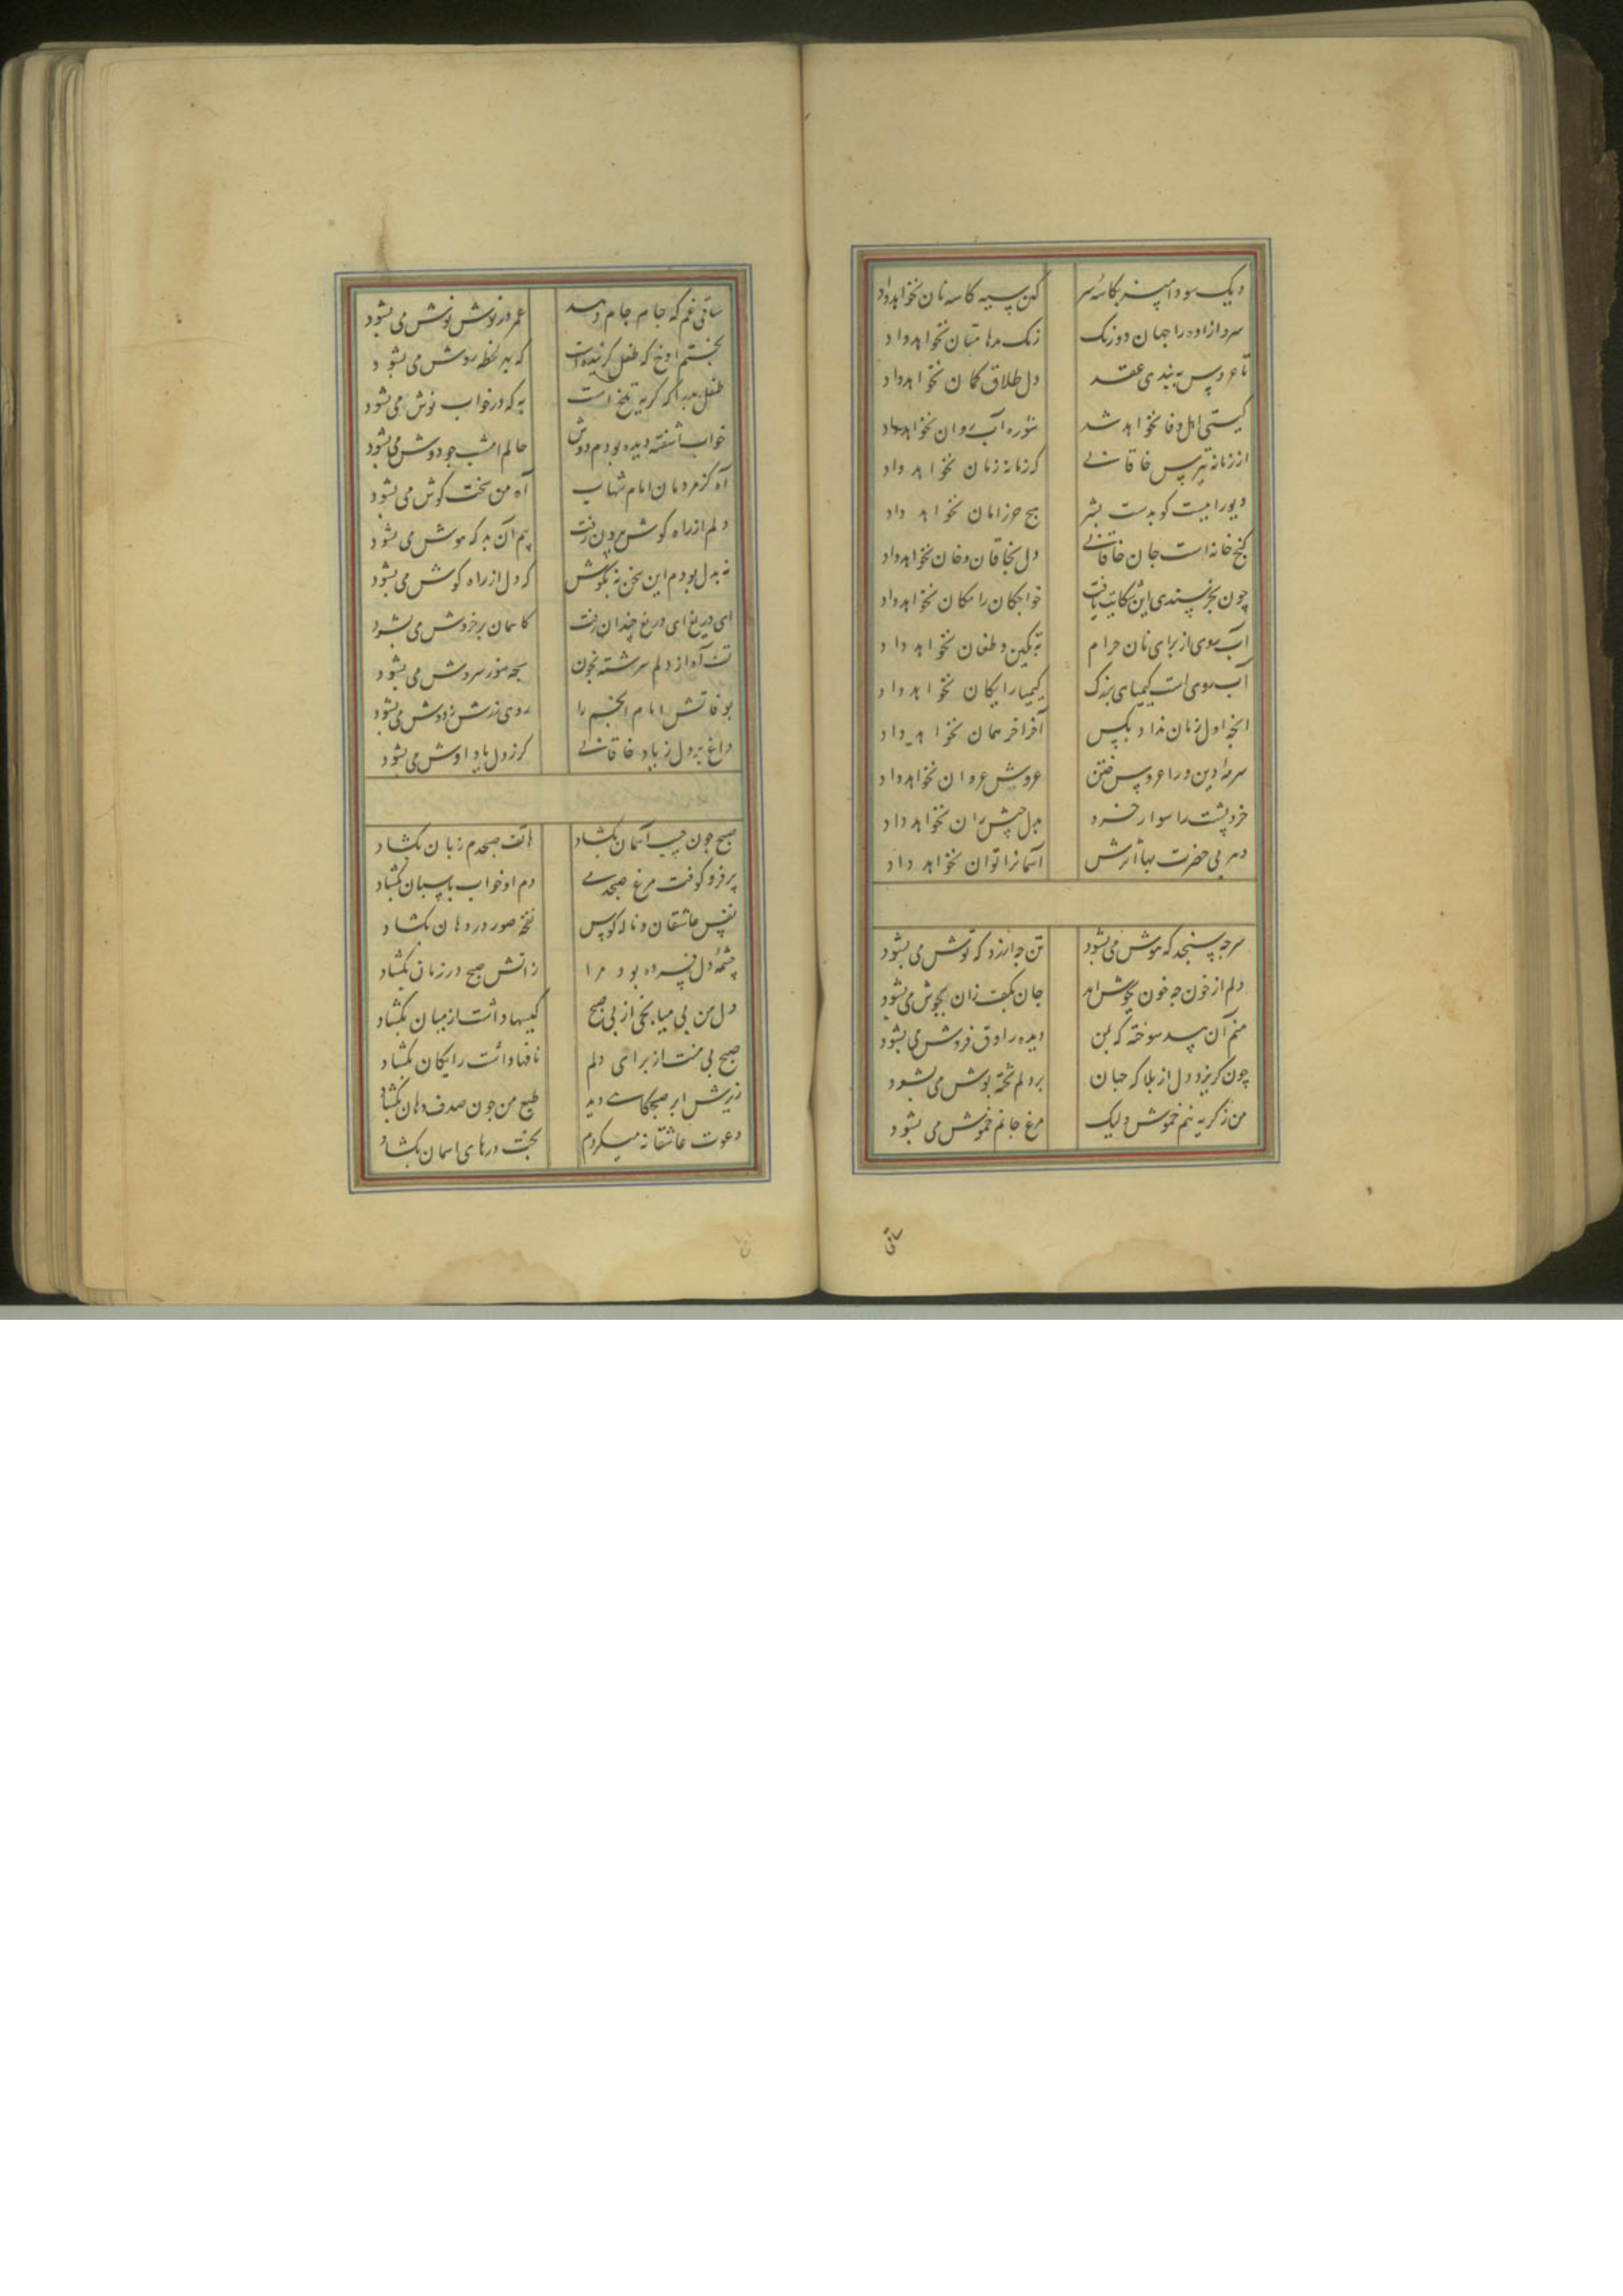 دیک سودا مپز بکاسه سر کین سیه کاسه نان نخواهد داد
سرو ازاده را جهان دورنک رنک مدهامتان نخواهد داد
تا عروس به بندی عقد دل طلاق کمان نخواهد داد
کیستی اهل وفا نخواهد شد شوره آب روان نخواهد داد
از زمانه بترس خاقانی که زمانه زمان نخواهد داد
دیو رابیست کو بدست بشر هیچ حرز امان نخواهد داد
کنج خانه است جان خاقانی دل بخاقان و خان نخواهد داد
چون بخرسندی این مکانت یافت خواجکان را مکان نخواهد داد
آب روی از برای نان حرام به تکین و طغان نخواهد داد
آب روی است کیمیای بزرک کیمیا رایکان نخواهد داد
انچه اول زمان نداد بکس آخر اخر همان نخواهد داد
سرمه دین ورا عروس ختن عروش عروان نخواهد داد
خر و پشت را سوار خرد بدل خش ران نخواهد داد
دهر بی حضرت بها اثرش آسمانرا توان نخواهد داد
سر چه سنجد که هوش می بشود تن چه ارزد که توش می بشود
دلم از خون چه خون بجوش اید جان بکف زان بجوش می بشود
منم آن بید سوخته که بمن دیده راوق فروش می بشود
چون کریزد دل از بلا که جهان بر دلم تخته پوش می بشود
من ز کریه نیم خموش ولیک مرغ جانم خموش می بشود
ساقی
ساقی غم که جام جام دهد عمر در نوش نوش می بشود
بختم اوخ که طفل کرینده است که بهر لحظه روش می بشود
طفل بد را که کریه تلخ است به که در خواب نوش می بشود
خواب آشفته دیده بودم دوش حالم امشب چو دوش می بشود
آه کز مردمان امام شهاب آه من سخت کوش می بشود
دلم از راه کوش بیرون رفت بیم آن بد که هوش می بشود
نه بدل بودم این سخن نه بکوش که دل از راه کوش می بشود
ای دریغ ای دریغ چندان رفت کاسمان بر خروش می بشود
تف آه از دلم سرشته بخون بچه سوز سروش می بشود
بوفاتش امام انجم را ردی زرش ز دوش می بشود
داغ بر دل ز یاد خاقانی کز دل یاد اوش می بشود
صبح چون جیب آسمان بکشاد هاتف صبحدم زبان بکشاد
پر فرو کوفت مرغ صبحدمی دم او خواب پاسبان بکشاد
نفس عاشقان و ناله کوس نفخه صور در دهان بکشاد
چشمه دل فسرده بود مرا ز اتش صبح در زمان بکشاد
دل من بی میانجی از پی صبح کیسها داشت از میان بکشاد
صبح بی منت از برای دلم نافها داشت رایکان بکشاد
زیرش ابر صبحکاهی دید طبع من چون صدف دهان بکشاد
دعوت عاشقانه میکردم بخت درهای اسمان بکشاد